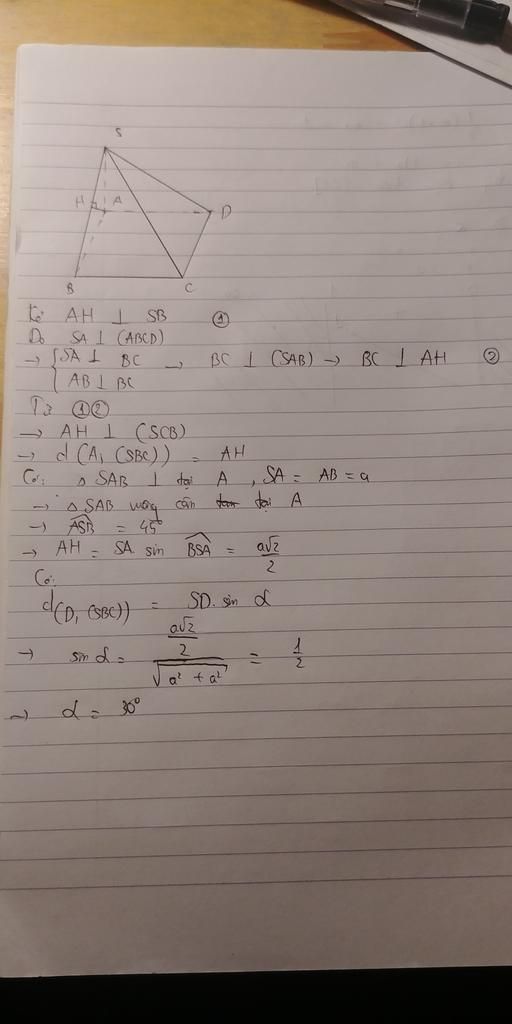 S
H A D
B C
Kẻ AH ⊥ SB ①
Do SA ⊥ (ABCD)
→ { SA ⊥ BC → BC ⊥ (SAB) → BC ⊥ AH ②
AB ⊥ BC
Từ ①②
→ AH ⊥ (SCB)
→ d(A, (SBC)) = AH
Có: △ SAB ⊥ tại A, SA = AB = a
→ △ SAB vuông cân tại A
→ ASB = 45°
→ AH = SA sin BSA = a√2/2
Có:
d(D, (SBC)) = SD. sin α
→ sin α = (a√2/2)/√(a² + a²) = 1/2
→ α = 30°